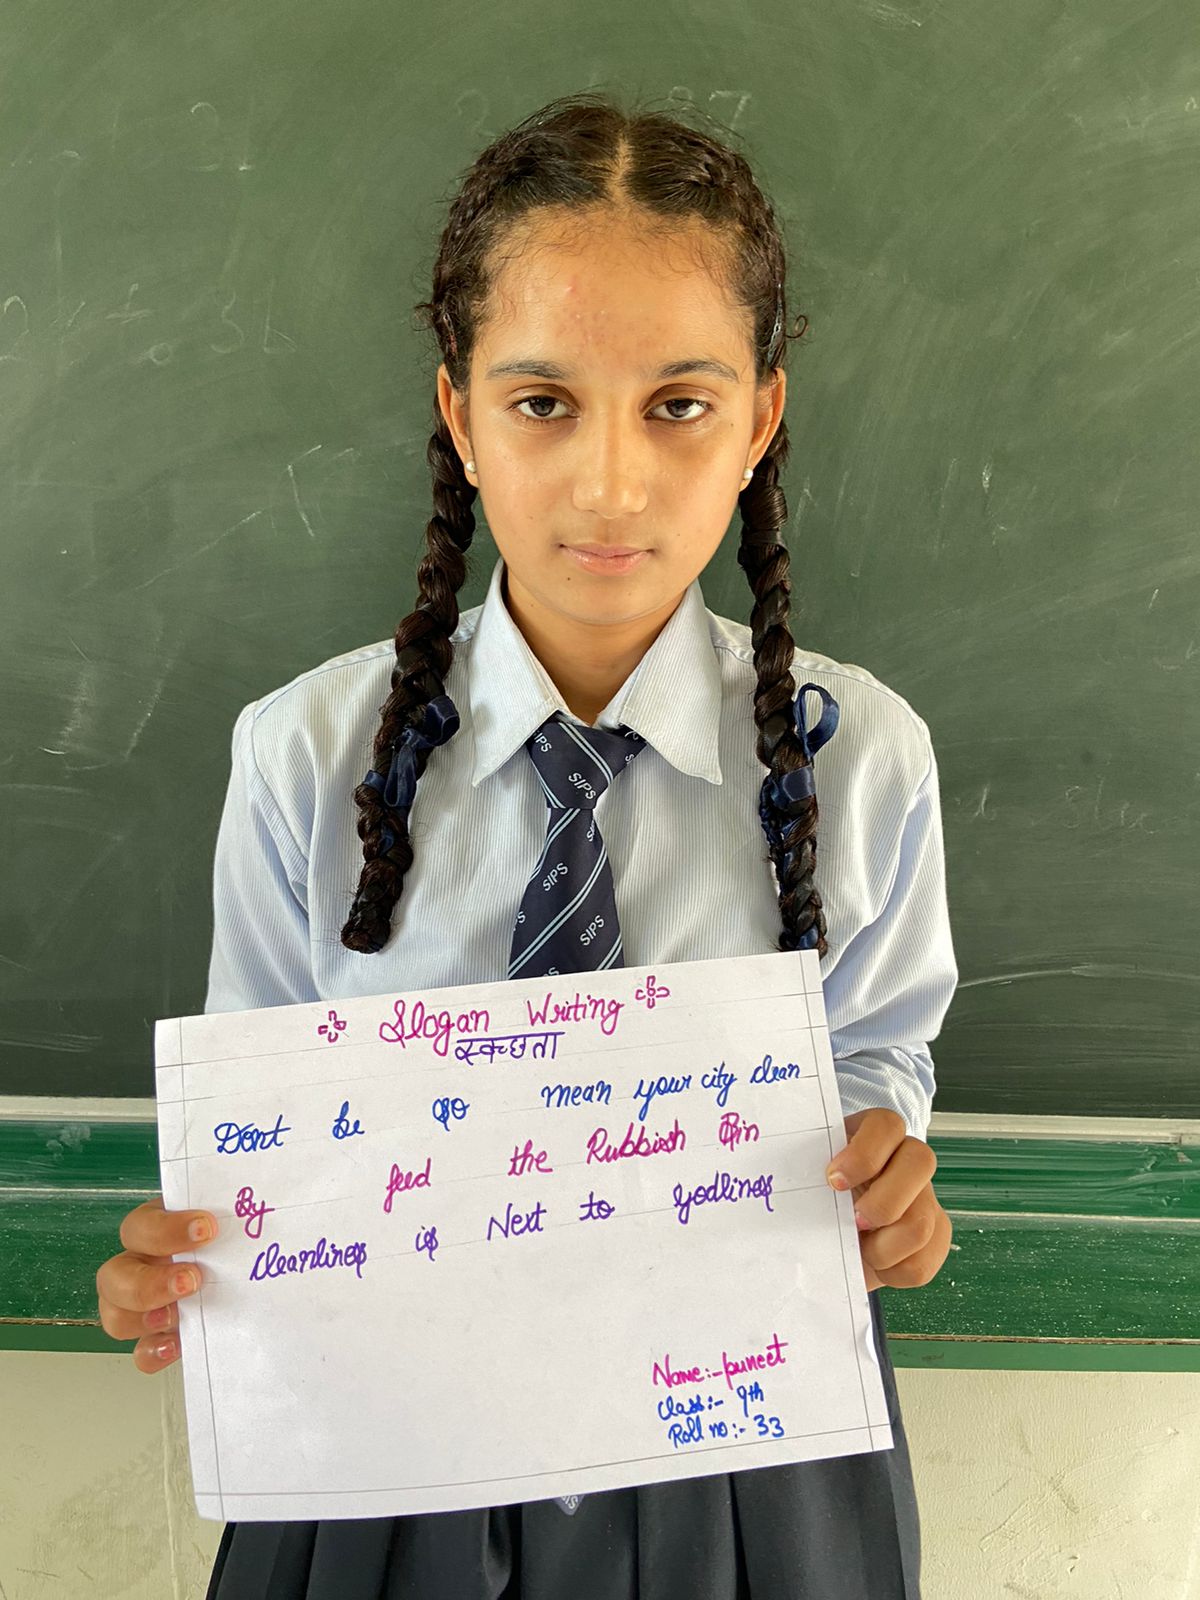 SIPS
SIPS
SIPS
Slogan Writing
स्वच्छता
Dont be so mean your city clean
By feed the Rubbish Bin
cleanliness is Next to godliness
Name:- puneet
class:- 9th
Roll no:- 33